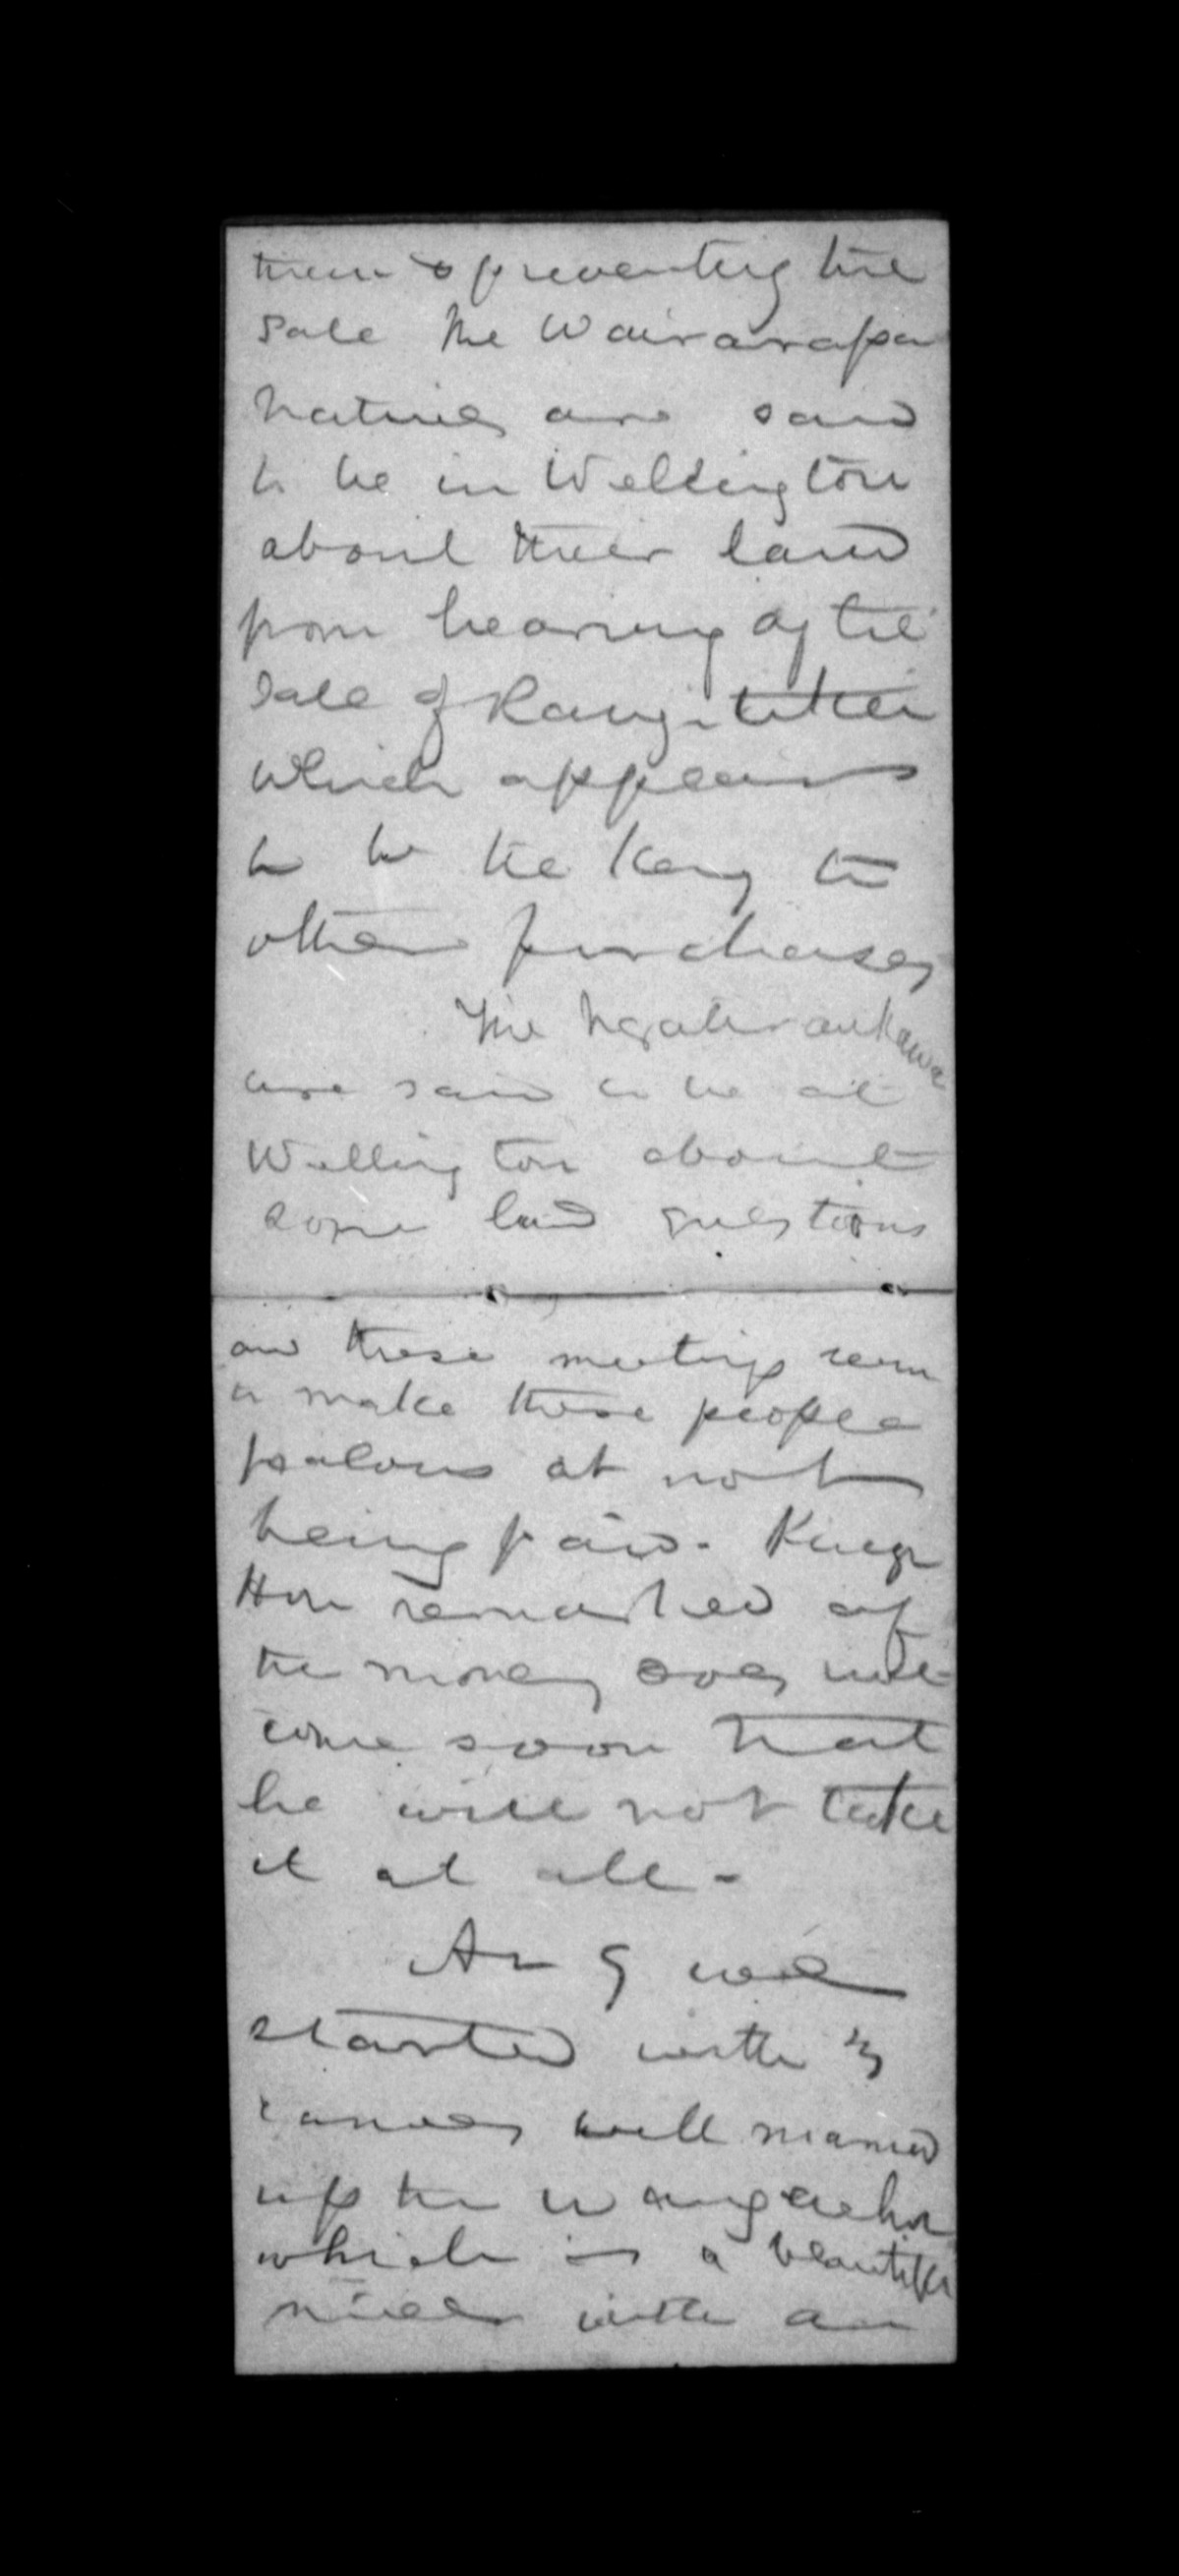 them & preventing the
sale The Wairarapa
natives are said
to be in Wellington
about their land
from hearing of the
sale of Rangitikei
which appears
to be the key to
other purchases
The Ngatiraukawa
are said to be at
Wellington about
some land questions
and these meetings seem
to make these people
jealous at not
being paid. Kingi
Hori remarked if
the money does not
come soon that
he will not take
it at all -
At 9 we
started with 3
canoes well manned
up the Wangaehu
which is a beautiful
river with an